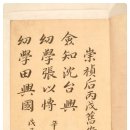 崇禎后丙戊舊
僉知沈台興
幼學張以
幼學田興國
戊